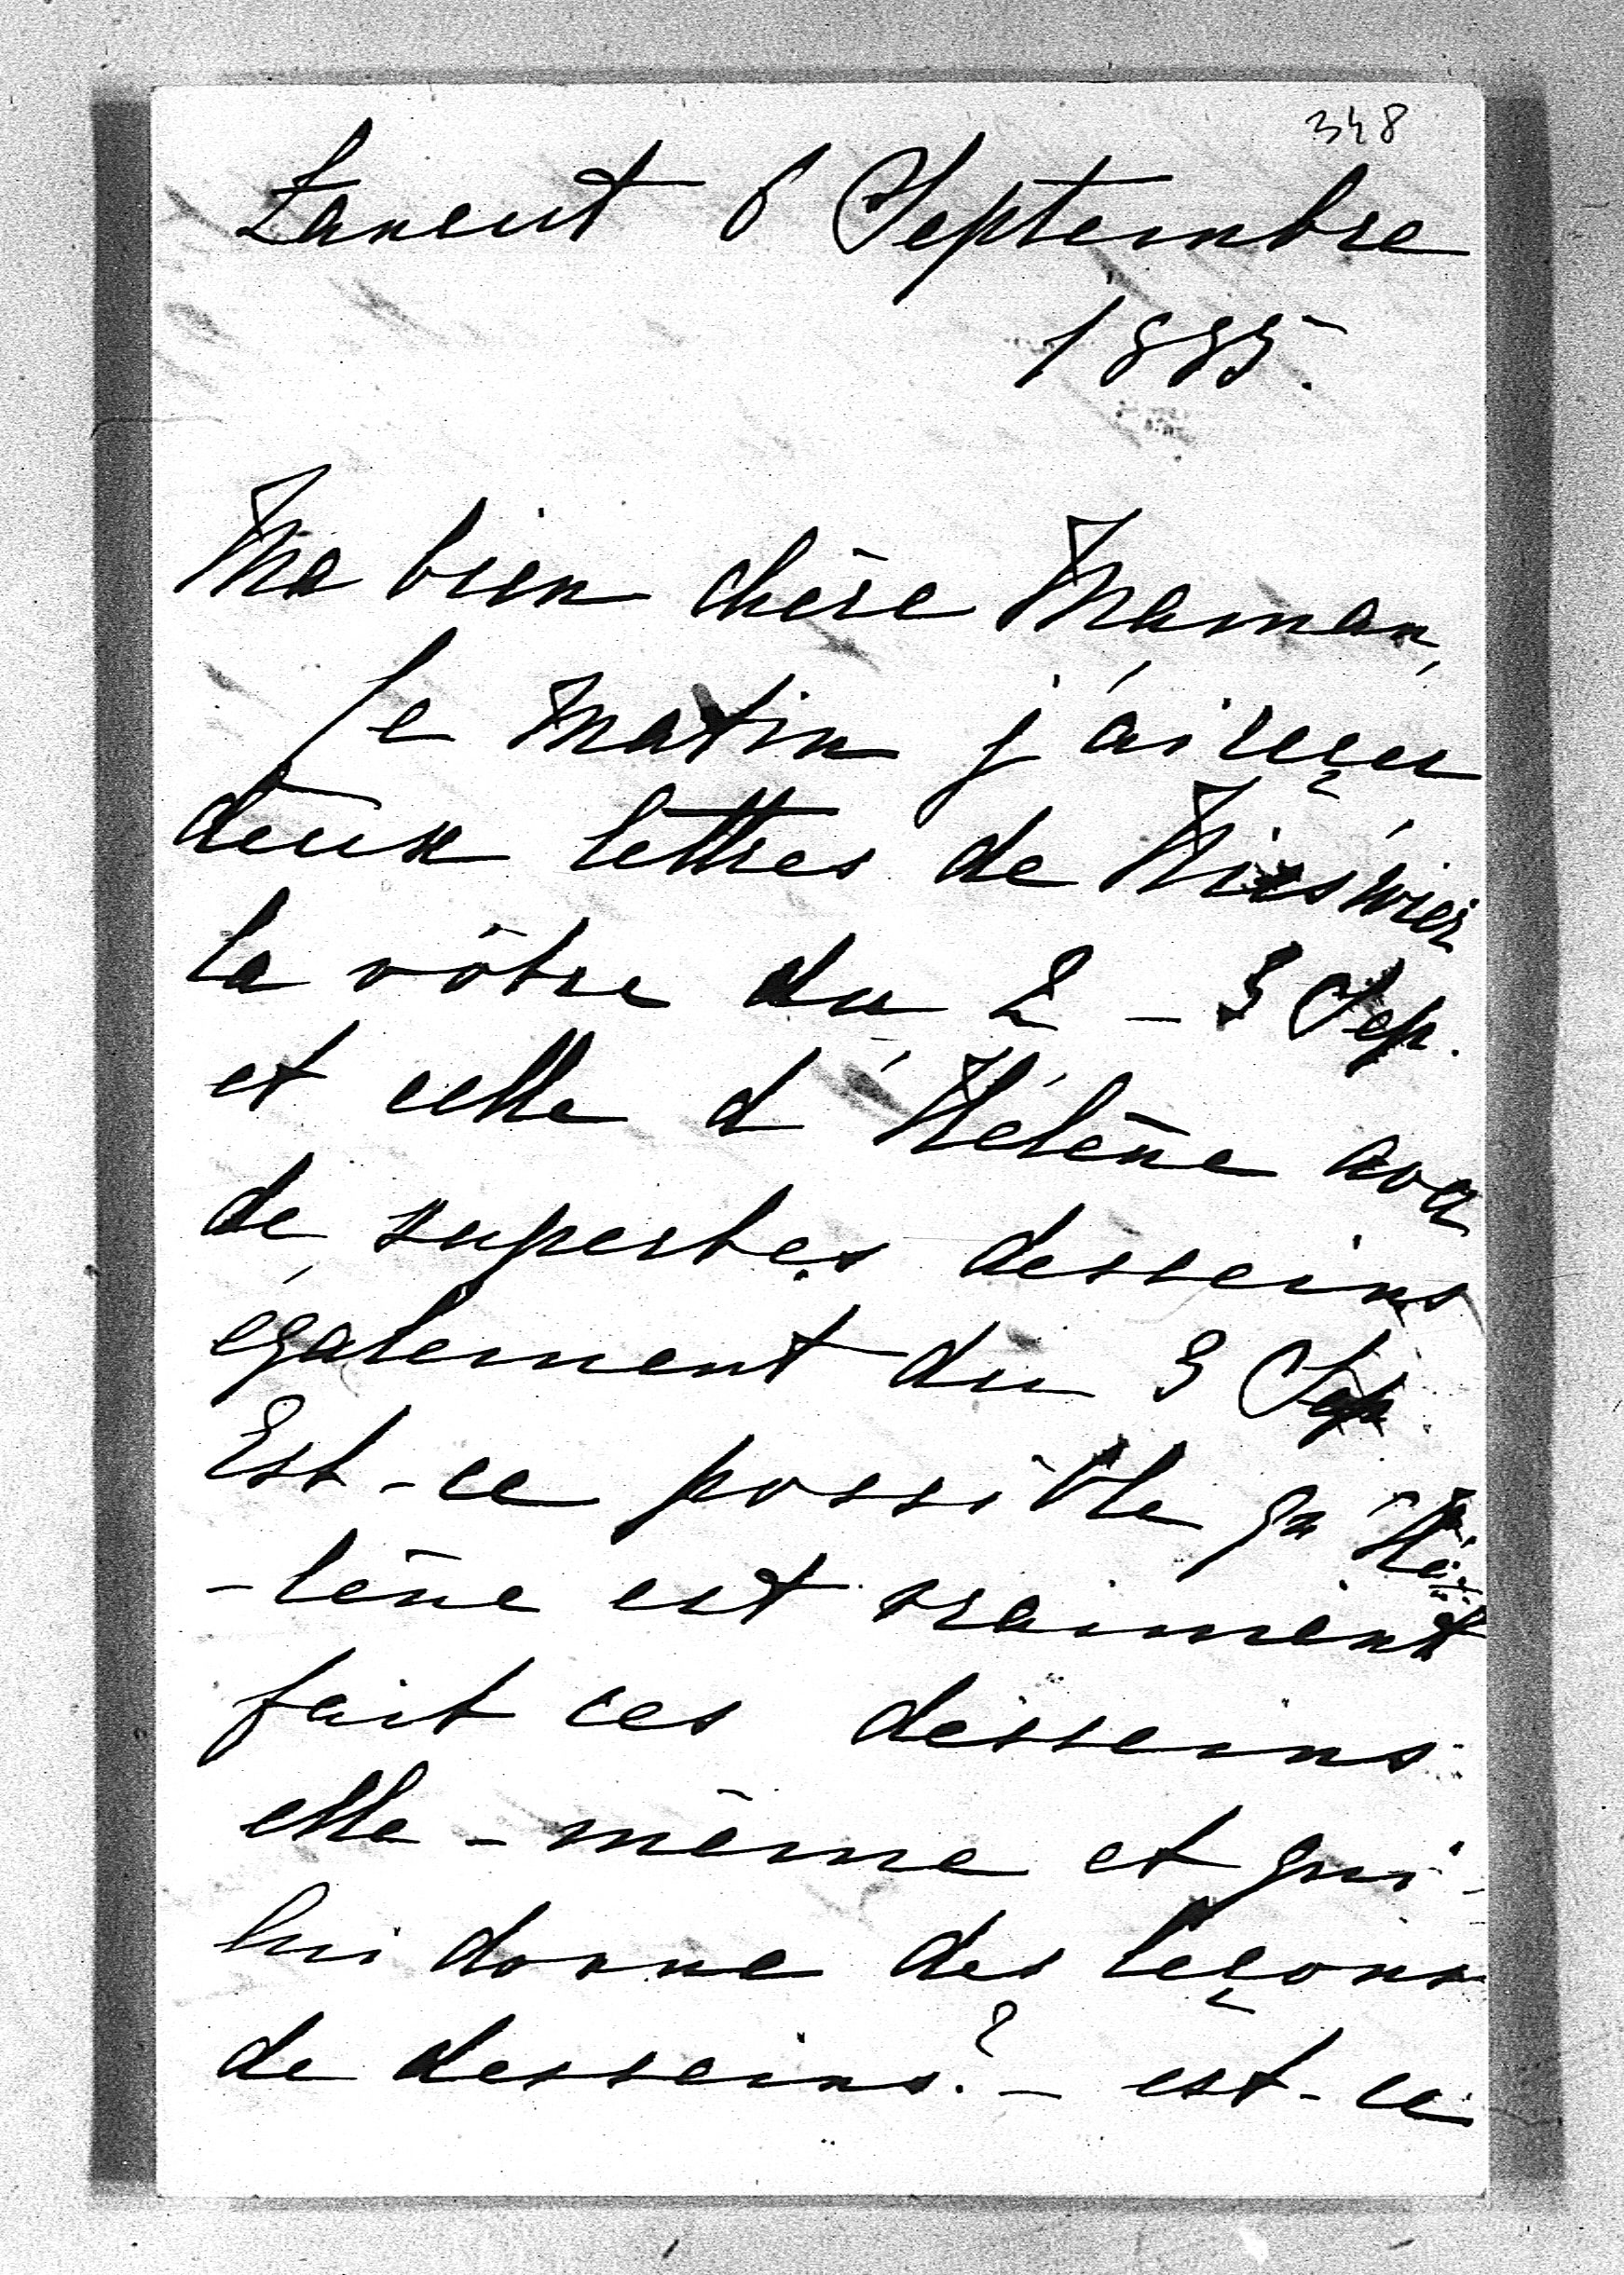 348
Łancut 6 Septembre
1885.
Ma bien chère Maman,
Ce matin j'ai reçu
deux lettres de Nieśwież
la vôtre du 2 - 3 Sep.
et celle d'Hélène avec
de superbes desseins
également du 3 Sep.
Est-ce possible qu'Hé-
-lène est vraiment
fait ces desseins
elle-même et qui
lui donne des leçons
de desseins? - est-ce